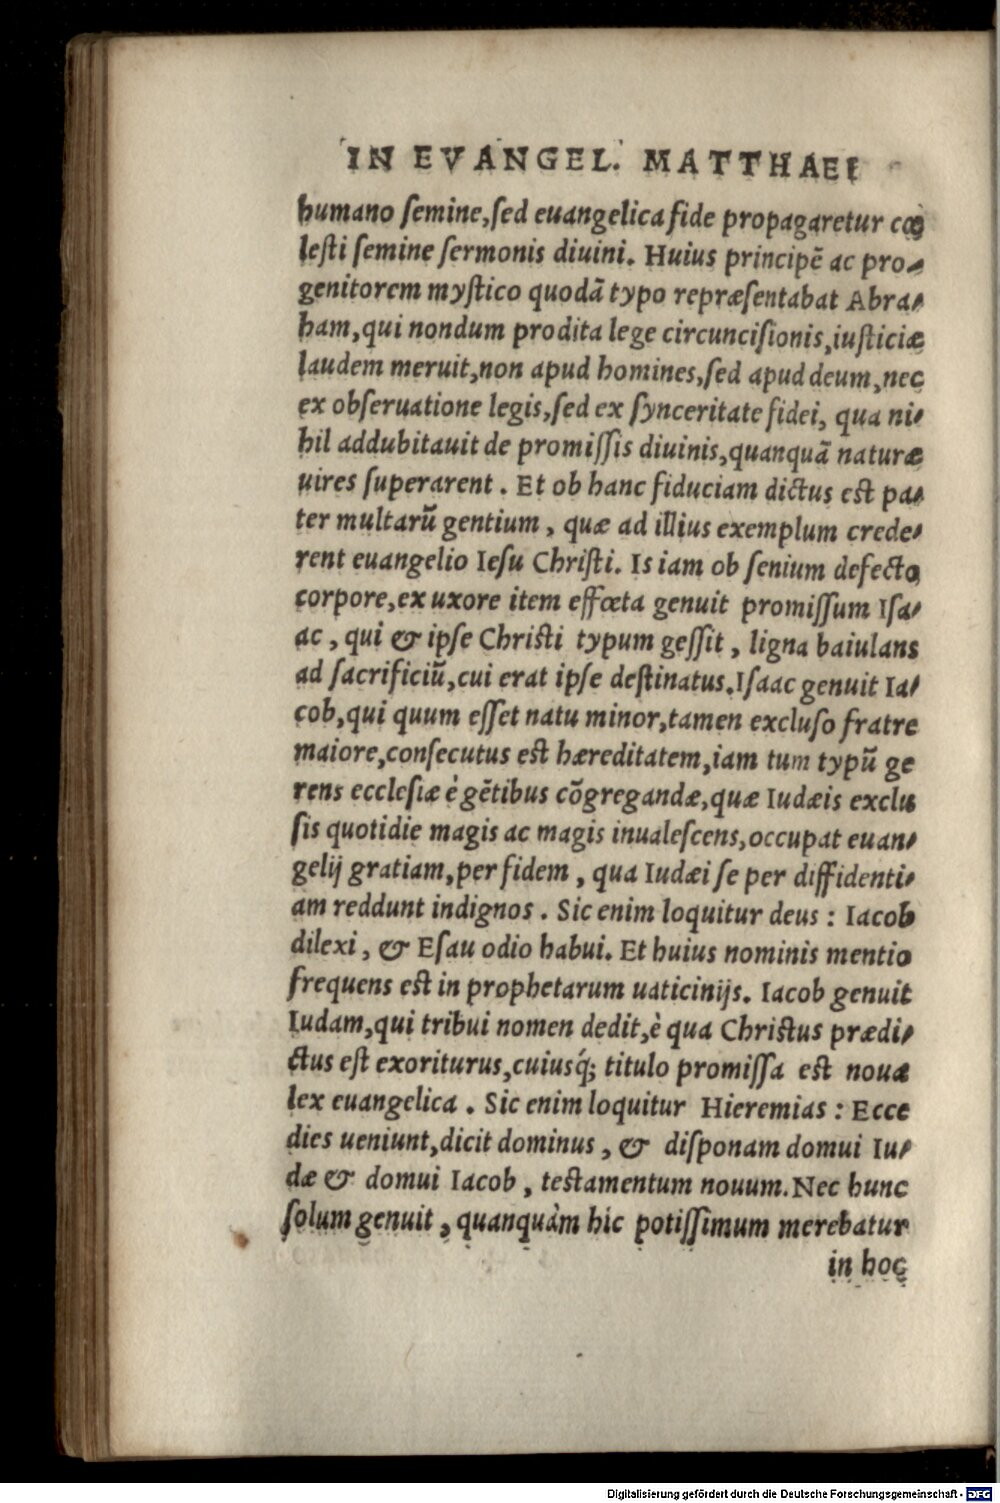 IN EVANGEL. MATTHAEI
humano ſemine,ſed euangelica fide propagaretur cœ
leſti ſemine ſermonis diuini. Huius principē ac pro-
genitorem myſtico quodā typo repræſentabat Abra-
ham,qui nondum prodita lege circunciſionis,iuſticiæ
laudem meruit,non apud homines,ſed apud deum,nec
ex obſeruatione legis,ſed ex ſynceritate fidei, qua ni-
hil addubitauit de promiſſis diuinis,quanquā naturæ
uires ſuperarent . Et ob hanc fiduciam dictus eſt pa-
ter multarū gentium , quæ ad illius exemplum crede-
rent euangelio Ieſu Chriſti. Is iam ob ſenium defecto
corpore,ex uxore item effœta genuit promiſſum Iſa-
ac , qui & ipſe Chriſti typum geſſit , ligna baiulans
ad ſacrificiū,cui erat ipſe deſtinatus.Iſaac genuit Ia-
cob,qui quum eſſet natu minor,tamen excluſo fratre
maiore,conſecutus eſt hæreditatem,iam tum typū ge
rens eccleſiæ è gētibus cōgregandæ,quæ Iudæis exclu
ſis quotidie magis ac magis inualeſcens,occupat euan-
gelij gratiam,per fidem , qua Iudæi ſe per diffidenti-
am reddunt indignos . Sic enim loquitur deus : Iacob
dilexi , & Eſau odio habui. Et huius nominis mentio
frequens eſt in prophetarum uaticinijs. Iacob genuit
Iudam,qui tribui nomen dedit,è qua Chriſtus prædi-
ctus eſt exoriturus,cuiusq́; titulo promiſſa eſt noua
lex euangelica . Sic enim loquitur Hieremias : Ecce
dies ueniunt,dicit dominus , & diſponam domui Iu-
dæ & domui Iacob , teſtamentum nouum.Nec hunc
ſolum genuit , quanquàm hic potiſſimum merebatur
in hoc
Digitalisierung gefördert durch die Deutsche Forschungsgemeinschaft - DFG